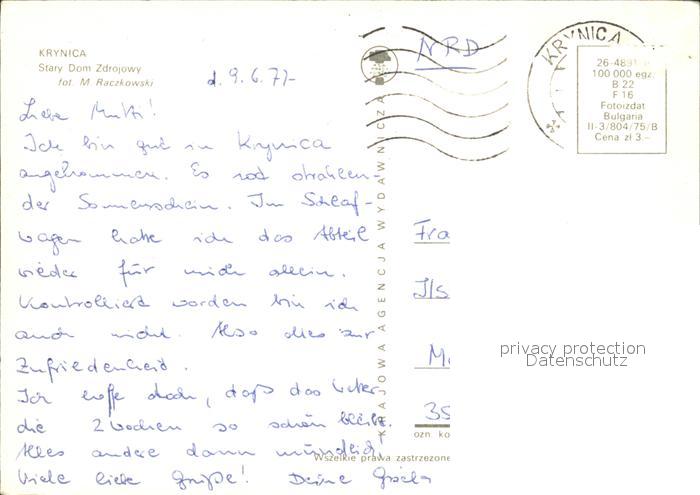 KRYNICA
Stary Dom Zdrojowy
fot. M. Raczkowski
d. 9.6.77
Liebe Mutti!
Ich bin gut in Krynica
angekommen. Es ist strahlen-
der Sonnenschein. Im Schlaf-
wagen hatte ich das Abteil
wieder für mich allein.
Kontrolliert worden bin ich
auch nicht. Also alles zur
Zufriedenheit.
Ich hoffe doch, daß das Wetter
die 2 Wochen so schön bleibt.
Alles andere dann mündlich!
Viele liebe Grüße! Deine Gisela
KRAJOWA AGENCJA WYDAWNICZA
NRD
KRYNICA
26-4891
100 000 egz.
B 22
F 16
Fotoizdat
Bulgaria
II-3/804/75/B
Cena zł 3.—
Fra
Ils
M
35
privacy protection
Datenschutz
ozn. ko
Wszelkie prawa zastrzeżone